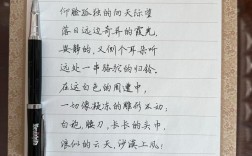 仰脸孤独的向天际望
落日远边奇异的霞光,
安静的,又侧个耳朵听
远处一串骆驼的归铃。
在这白色的周遭中,
一切像凝冻的雕形不动;
白袍,腰刀,长长的头巾,
浪似的云天,沙漠上风!